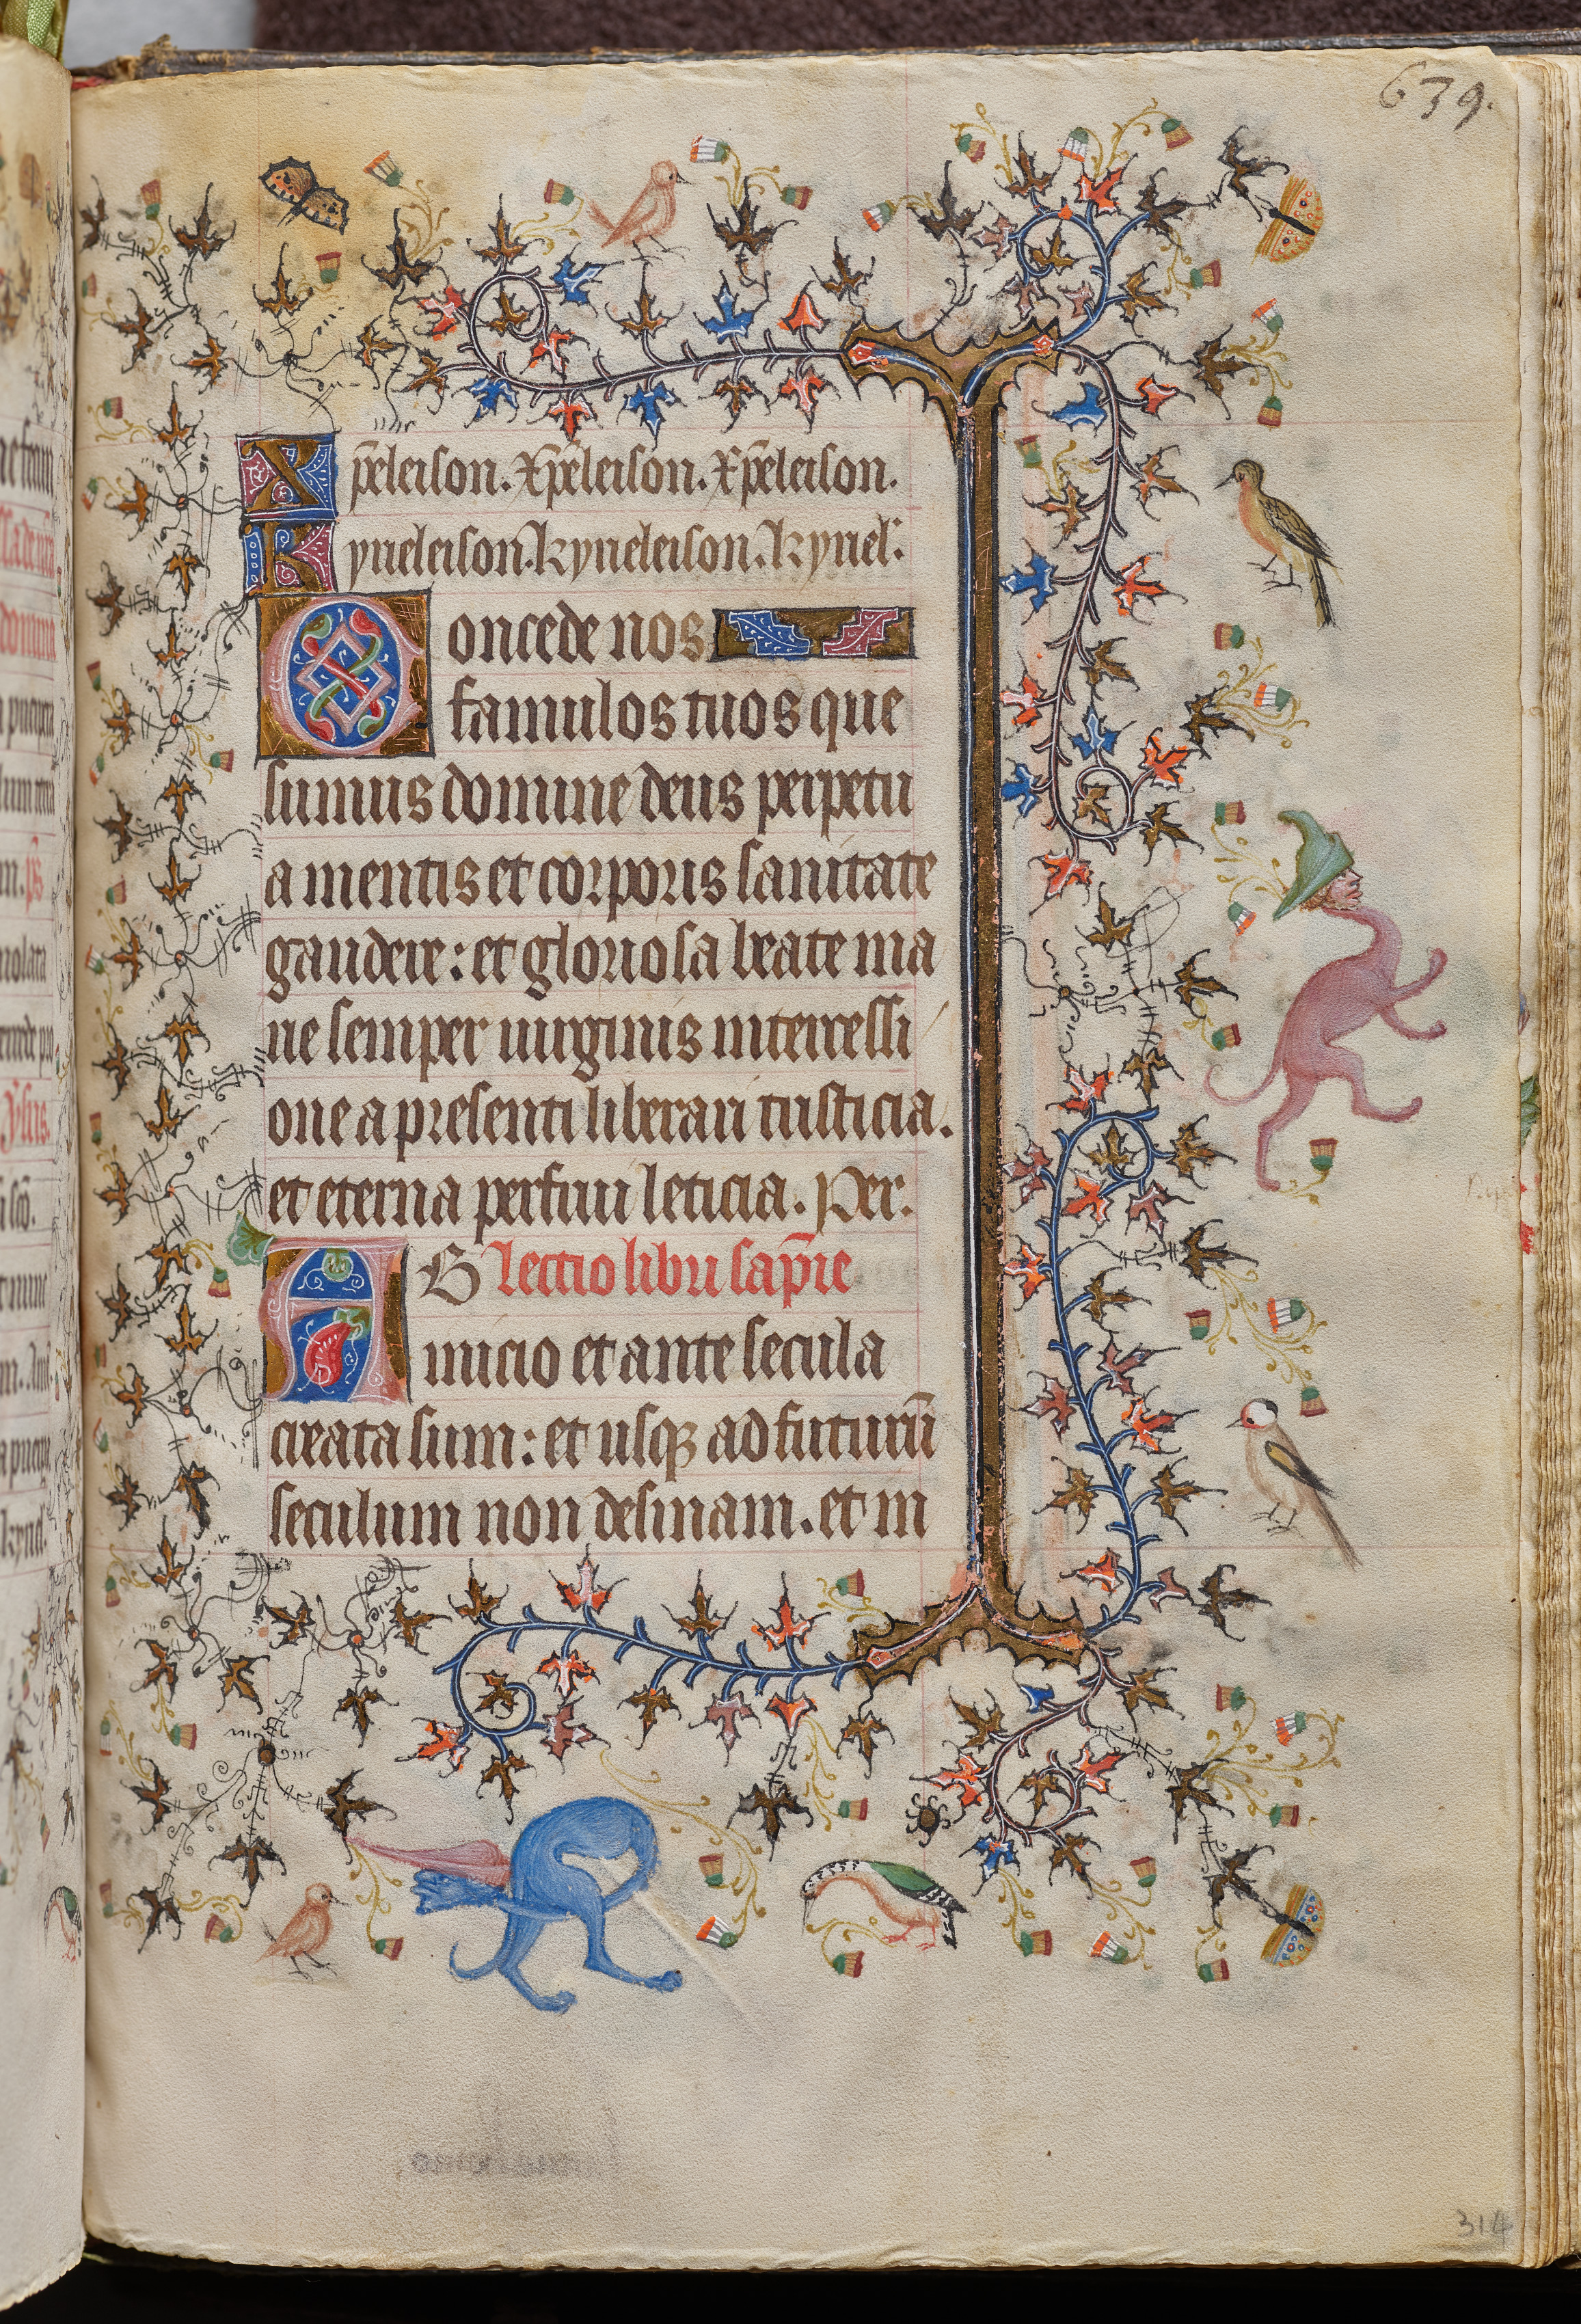 639.
Xp̄eleison. Xp̄eleison. Xp̄eleison.
Kyrieleison. kyrieleison. kyriel'.
Concede nos
famulos tuos que
sumus domine deus perpetu
a mentis et corporis sanitate
gaudere: et gloriosa beate ma
rie semper uirginis intercessi
one a presenti liberari tristicia.
et eterna perfrui leticia. Per.
Ab lectio libri sap̄ie
inicio et ante secula
creata sum: et usqꝫ ad futurū
seculum non desinam. et in
314